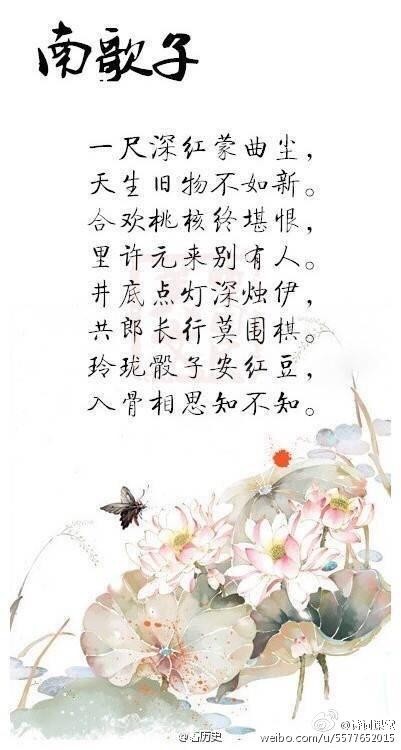 南歌子
一尺深红蒙曲尘，
天生旧物不如新。
合欢桃核终堪恨，
里许元来别有人。
井底点灯深烛伊，
共郎长行莫围棋。
玲珑骰子安红豆，
入骨相思知不知。
@看历史
weibo.com/u/5577652015